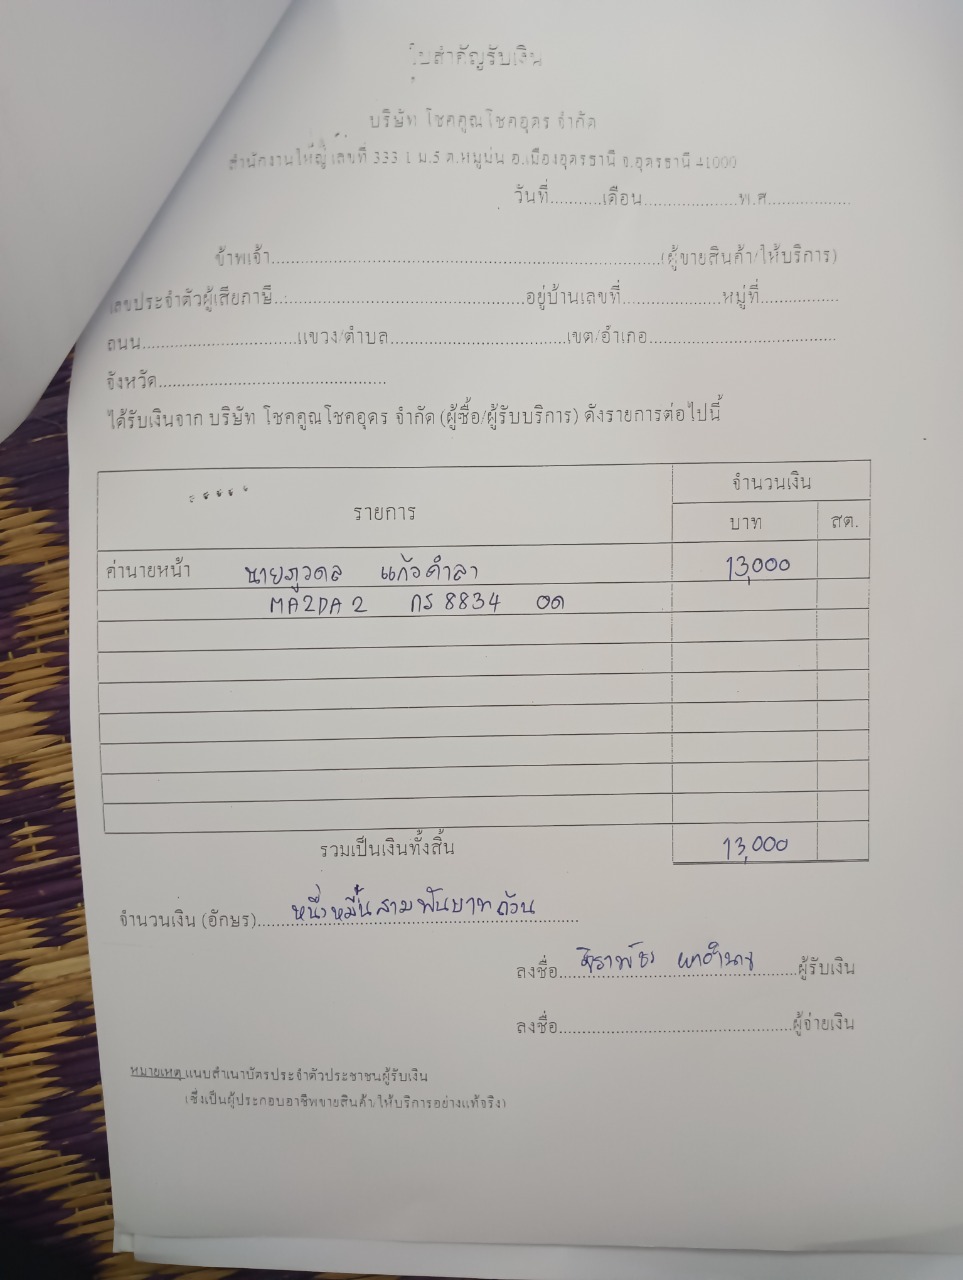 ใบสำคัญรับเงิน
บริษัท โชคคูณโชคอุดร จำกัด
สำนักงานใหญ่ เลขที่ 333 1 ม.5 ต.หมูม่น อ.เมืองอุดรธานี จ.อุดรธานี 41000
วันที่...........เดือน...................พ.ศ.................
ข้าพเจ้า................................................................................(ผู้ขายสินค้า/ให้บริการ)
เลขประจำตัวผู้เสียภาษี..................................................อยู่บ้านเลขที่....................หมู่ที่................
ถนน................................แขวง/ตำบล....................................เขต/อำเภอ......................................
จังหวัด...............................................
ได้รับเงินจาก บริษัท โชคคูณโชคอุดร จำกัด (ผู้ซื้อ/ผู้รับบริการ) ดังรายการต่อไปนี้
รายการ จำนวนเงิน
บาท สต.
ค่านายหน้า นายภูวดล แก้วคำลา 13,000
MA2DA 2 กร 8834 อด
รวมเป็นเงินทั้งสิ้น 13,000
จำนวนเงิน (อักษร) หนึ่งหมื่นสามพันบาทถ้วน
ลงชื่อ ผู้รับเงิน
ลงชื่อ................................................ผู้จ่ายเงิน
หมายเหตุ แนบสำเนาบัตรประจำตัวประชาชนผู้รับเงิน
(ซึ่งเป็นผู้ประกอบอาชีพขายสินค้า/ให้บริการอย่างแท้จริง)